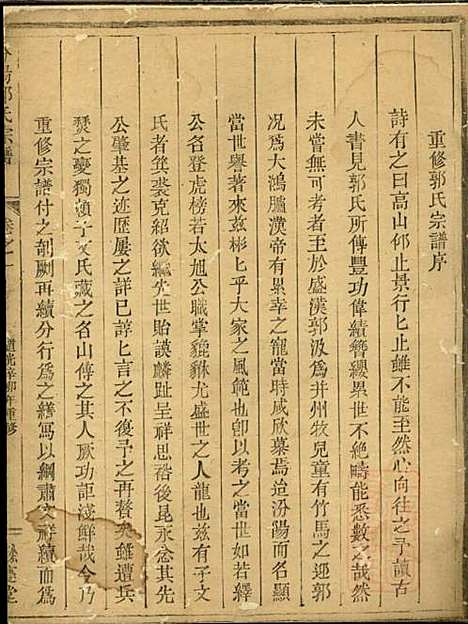 重修郭氏宗譜序
詩有之曰高山仰止景行匕止雖不能至然心向往之予讀古
人書見郭氏所傳豐功偉績簪纓累世不絕疇能悉數之哉然
未嘗無可考者至於盛漢郭汲為并州牧兒童有竹馬之迎郭
况為大鴻臚漢帝有累幸之寵當時咸欣慕焉迨汾陽而名顯
當世譽著來兹彬匕乎大家之風範也卽以考之當世如若繹
公名登虎榜若太旭公職掌貔貅尤盛世之人龍也兹有子文
氏者箕裘克紹欲繼先世貽謨麟趾呈祥思啓後昆永念其先
公肇基之迹歷屢之詳已諄匕言之不復予之再贅矣雖遭兵
燹之變獨賴子文氏藏之名山傳之其人厥功詎淺鮮哉今乃
重修宗譜付之剞劂再續分行為之繕寫以綱肅文祥續而為
郭氏宗譜
卷之一
道光辛卯年重修